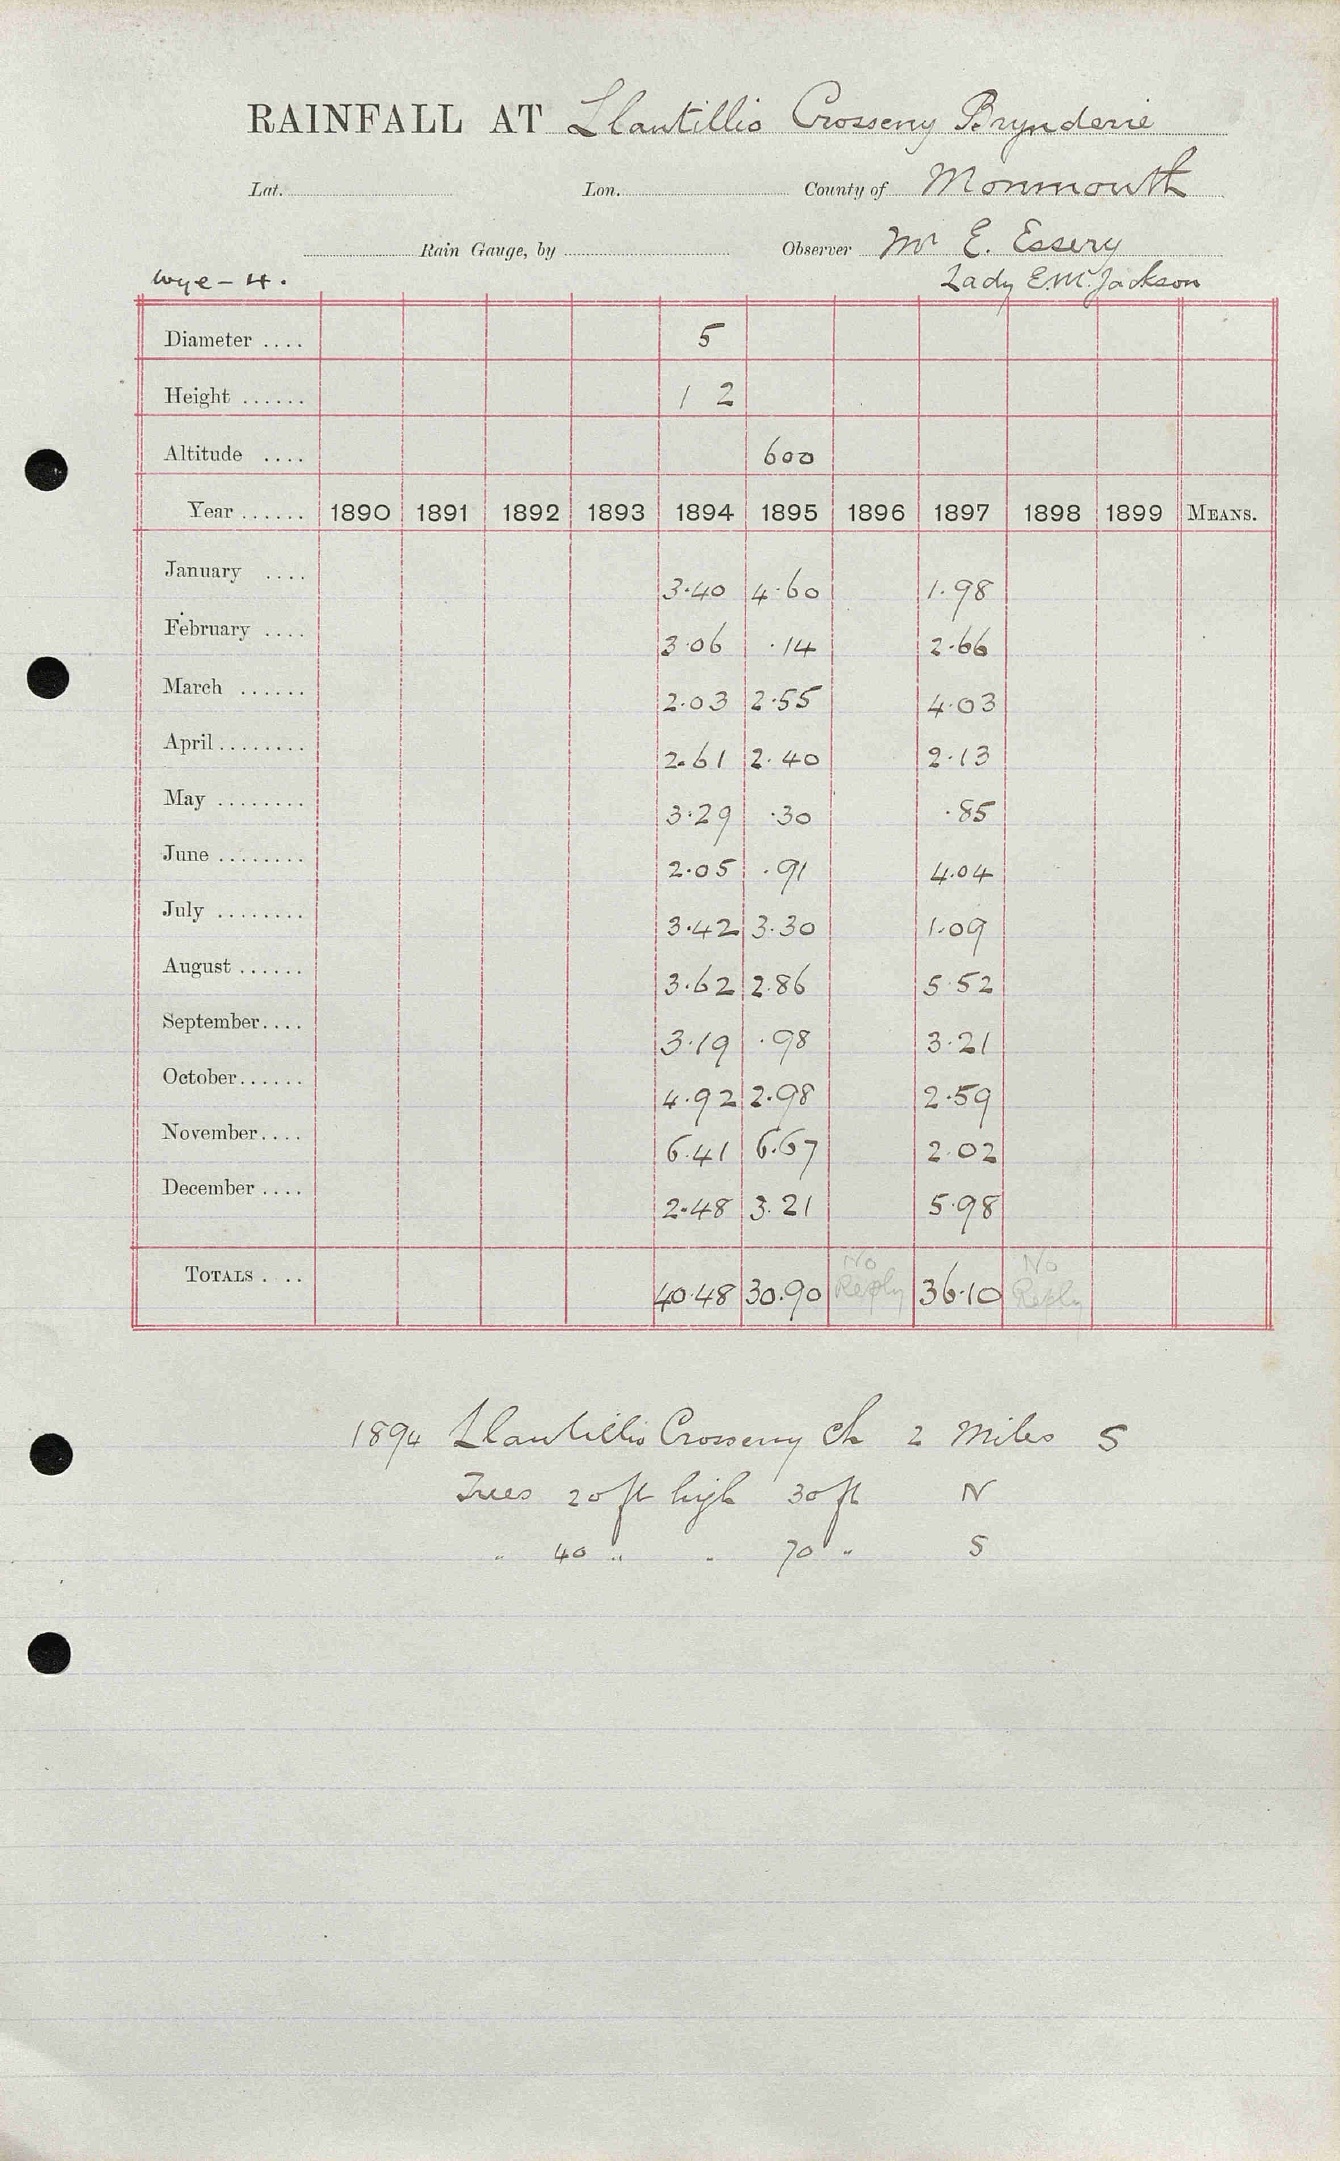 RAINFALL AT Llantillio Crosseny Brynderie
Lat. Lon. County of Monmouth
Rain Gauge, by Observer Mr E. Essery
Wye - 4. Lady E.M. Jackson
Diameter .... 5
Height ...... 1 2
Altitude .... 600
Year ...... 1890 1891 1892 1893 1894 1895 1896 1897 1898 1899 MEANS.
January .... 3.40 4.60 1.98
February .... 3.06 .14 2.66
March ...... 2.03 2.55 4.03
April ........ 2.61 2.40 2.13
May ........ 3.29 .30 .85
June ........ 2.05 .91 4.04
July ........ 3.42 3.30 1.09
August ...... 3.62 2.86 5.52
September.... 3.19 .98 3.21
October...... 4.92 2.98 2.59
November.... 6.41 6.67 2.02
December .... 2.48 3.21 5.98
TOTALS . .. 40.48 30.90 No Reply 36.10 No Reply
1894 Llantillio Crosseny Ch 2 Miles S
Trees 20 ft high 30 ft N
" 40 " " 70 " S